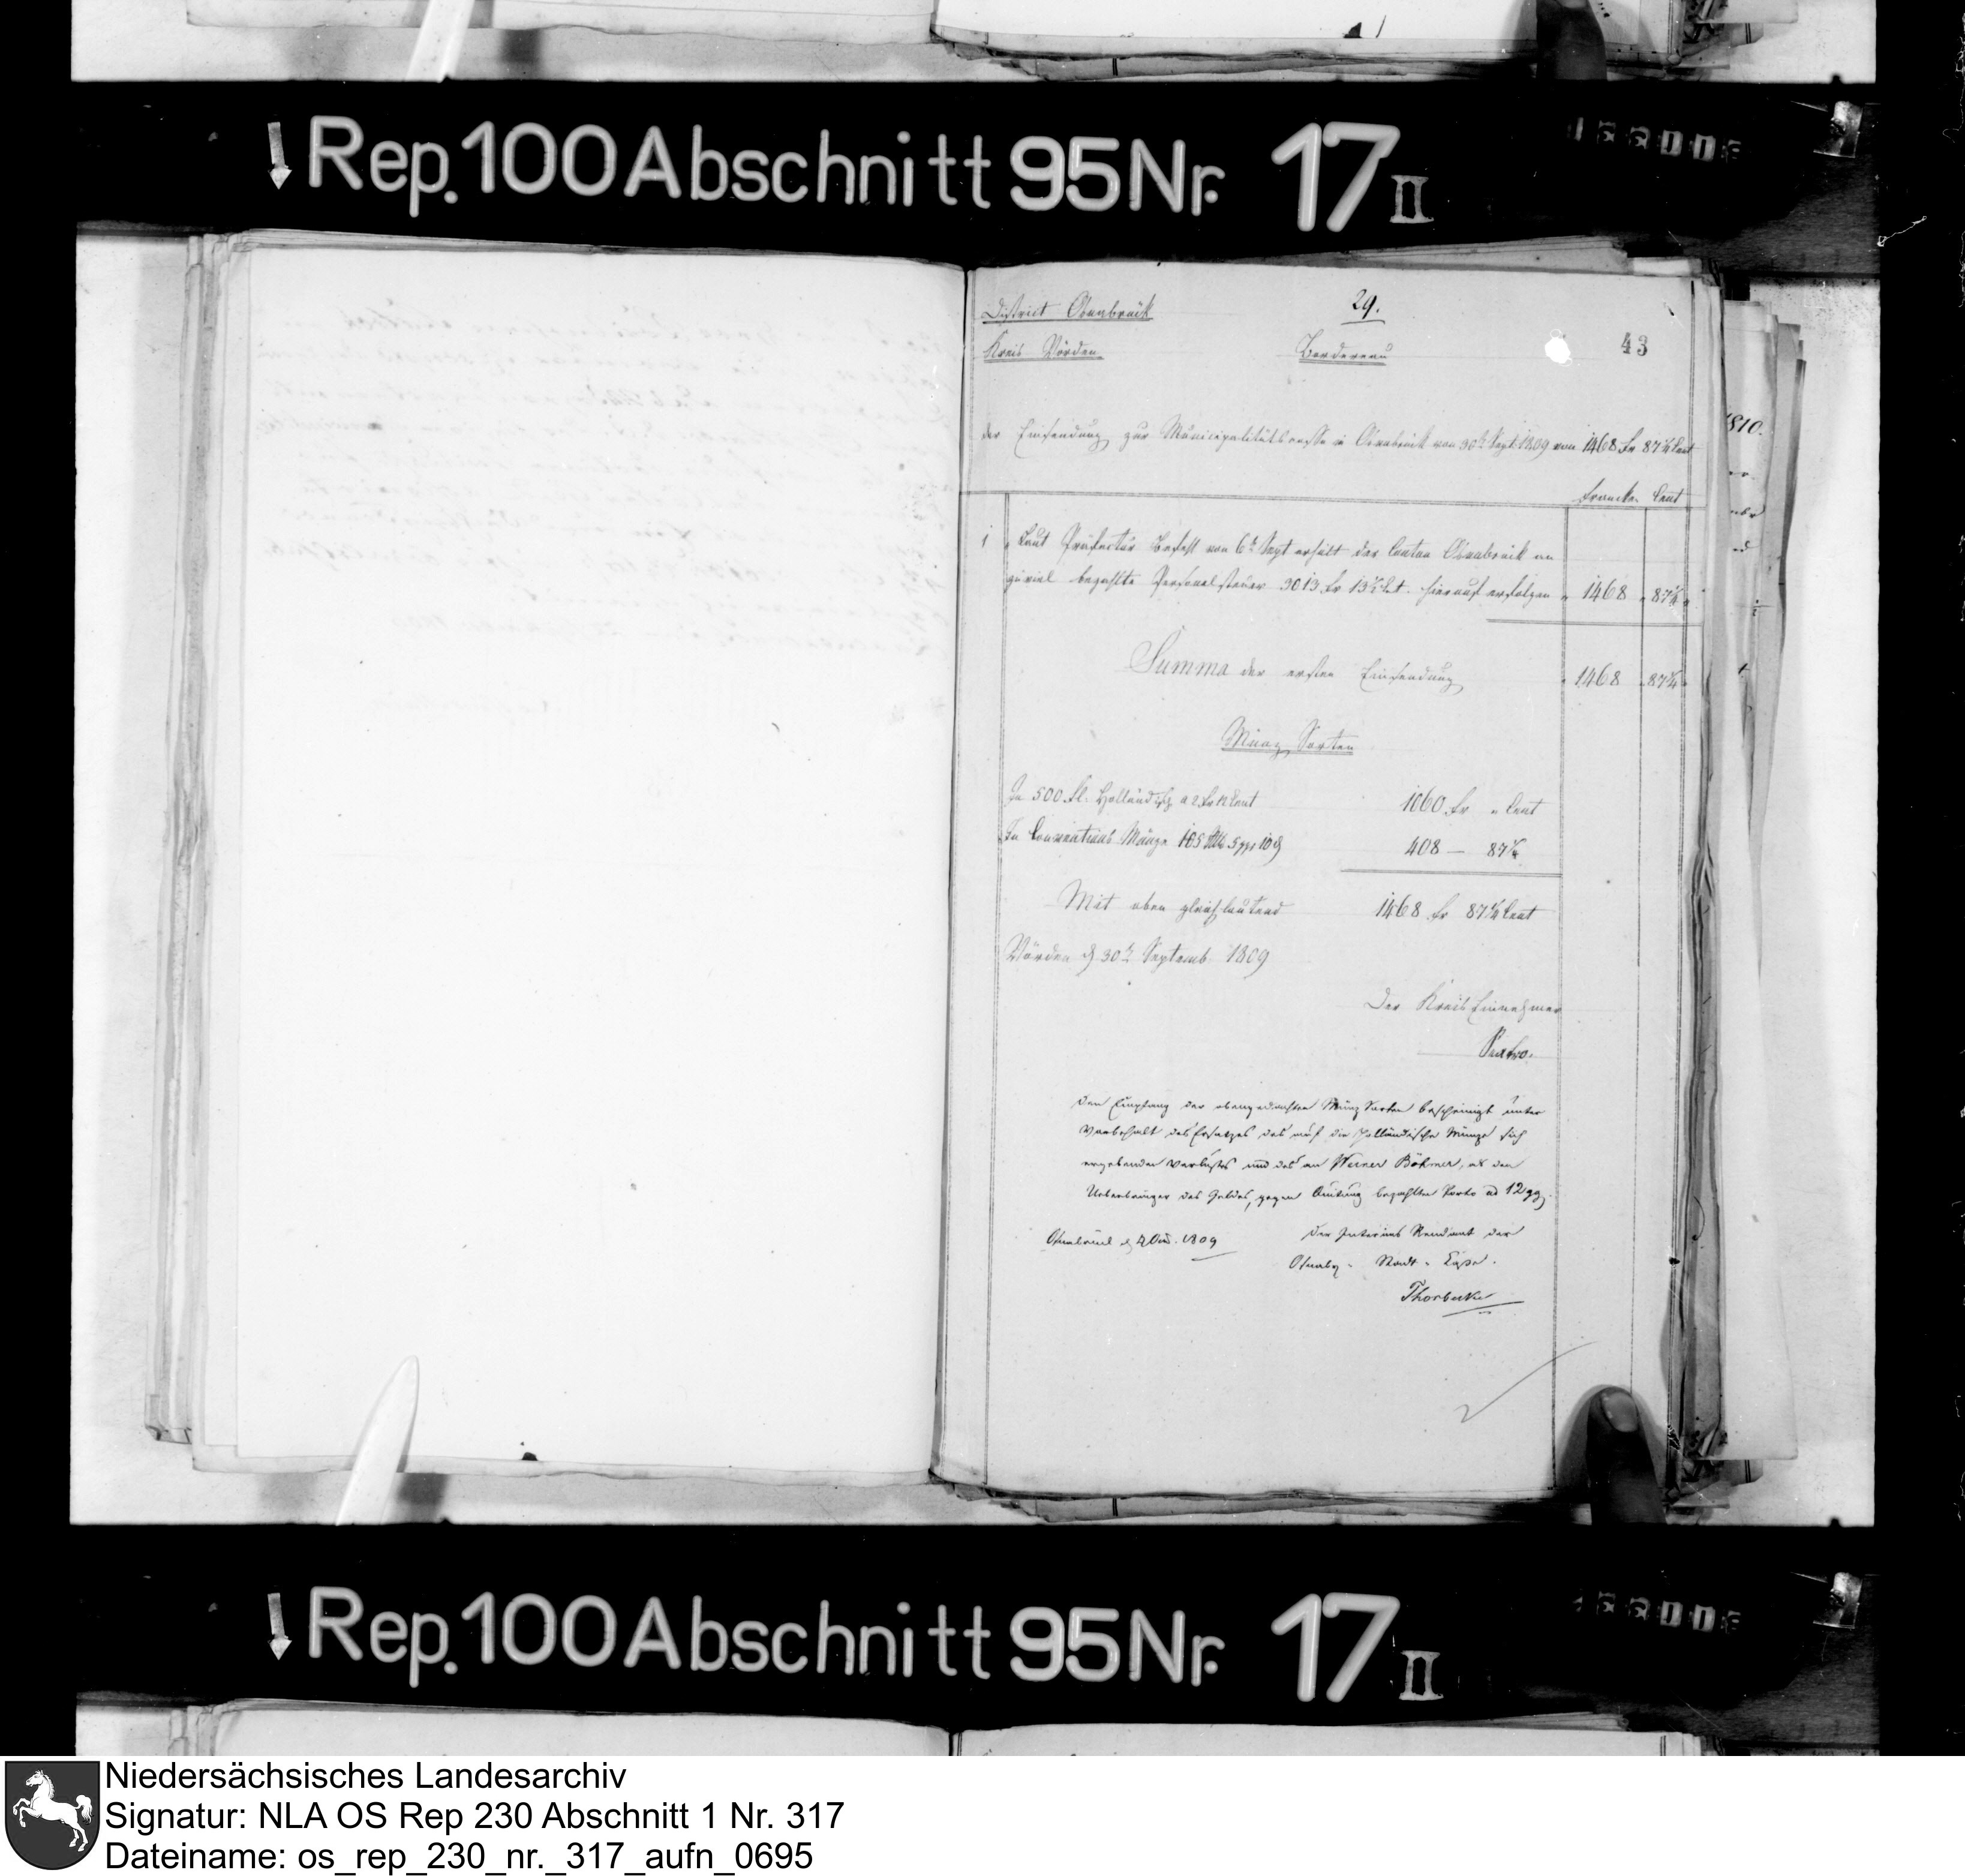 Rep. 100 Abschnitt 95 Nr. 17 II
District Osnabrück
29.
43
Kreis Vörden
Bordereau
der Einsendung zur Municipalitätscasse in Osnabrück von 30t Sept 1809 von 1468 Fr 87¼ Cent
Francken Cent
1
Laut Präfectur Befehl von 6t Sept erhält der Canton Osnabrück an
zuviel bezahlte Personalsteuer 3013 Fr 13½ Ct. hierauf erfolgen " 1468 " 87¼ "
Summa der ersten Einsendung " 1468 " 87¼ "
Münz Sorten
In 500 Fl. Holländisch a 2 Fr 12 Cent 1060 Fr " Cent
In Conventions Münze 105 Rth 5 ggr 10 d 408 — 87¼
Mit oben gleichlautend 1468 Fr 87¼ Cent
Vörden d 30t Septemb 1809
Der Kreis Einnehmer
Den Empfang der obengedachten Münz Sorten bescheinigt unter
Vorbehalt des Ersatzes des auf die Holländische Münze sich
ergebenden Verlustes und des an Werner Böhmer, als den
Ueberbringer des Geldes, gegen Quitung bezahlten Porto ad 12 gg.
Osnabrück d 4 Oct. 1809
Der Interims Rendant der
Osnabr. Stadt - Casse.
Thorbecke
1810.
Rep. 100 Abschnitt 95 Nr. 17 II
Niedersächsisches Landesarchiv
Signatur: NLA OS Rep 230 Abschnitt 1 Nr. 317
Dateiname: os_rep_230_nr._317_aufn_0695